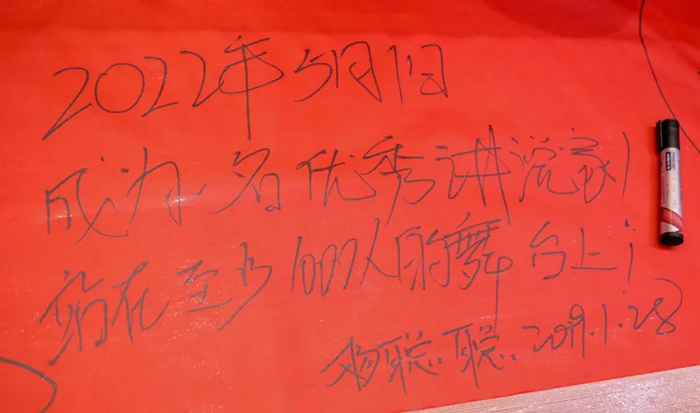 2022年5月1日
成为一名优秀讲说家！
站在至少1000人的舞台上！
杨聪聪 2019.1.28